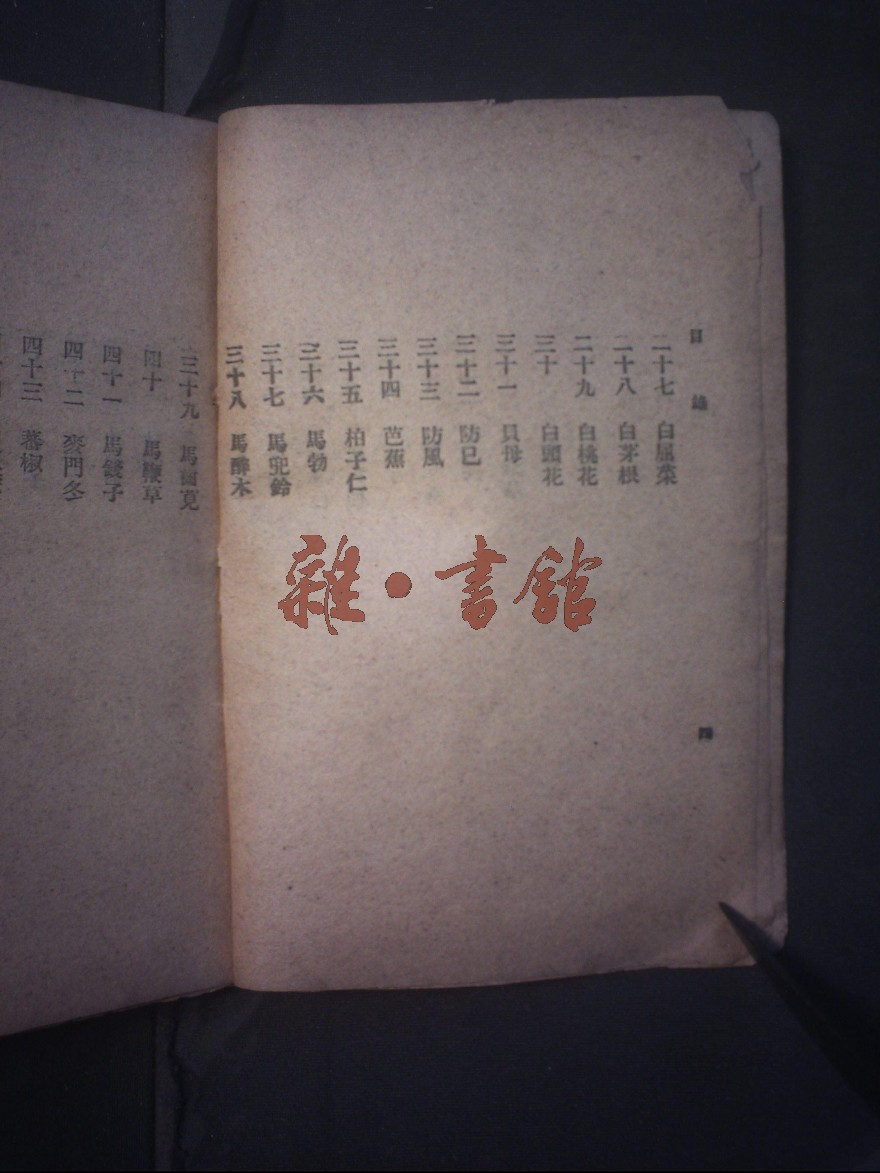 目錄
二十七 白屈菜
二十八 白茅根
二十九 白桃花
三十 白頭花
三十一 貝母
三十二 防已
三十三 防風
三十四 芭蕉
三十五 柏子仁
三十六 馬勃
三十七 馬兜鈴
三十八 馬醉木
四
三十九 馬齒莧
四十 馬鞭草
四十一 馬錢子
四十二 麥門冬
四十三 蕃椒
雜·書館